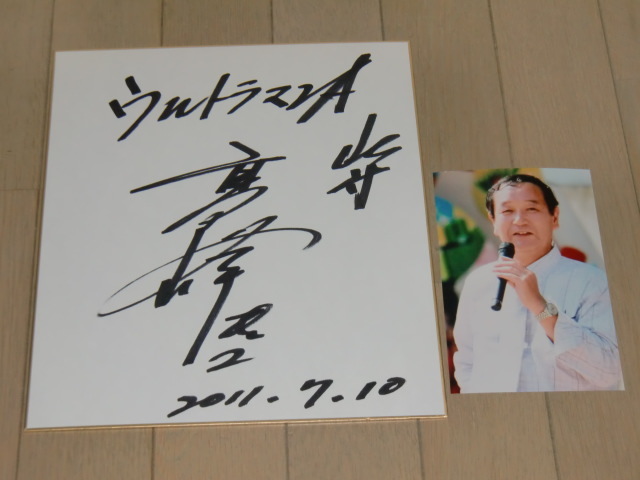 ウルトラマンA
高峰圭二
2011.7.10